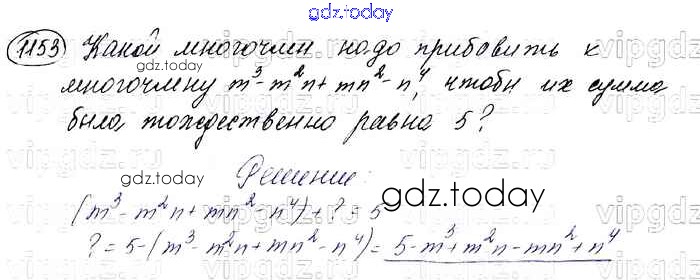 gdz.today
1153 Какой многочлен надо прибавить к
многочлену m³-m²n+mn²-n⁴, чтобы их сумма
была тождественно равна 5?
gdz.today
Решение:
gdz.today
(m³-m²n+mn²-n⁴)+?=5
?=5-(m³-m²n+mn²-n⁴)=5-m³+m²n-mn²+n⁴